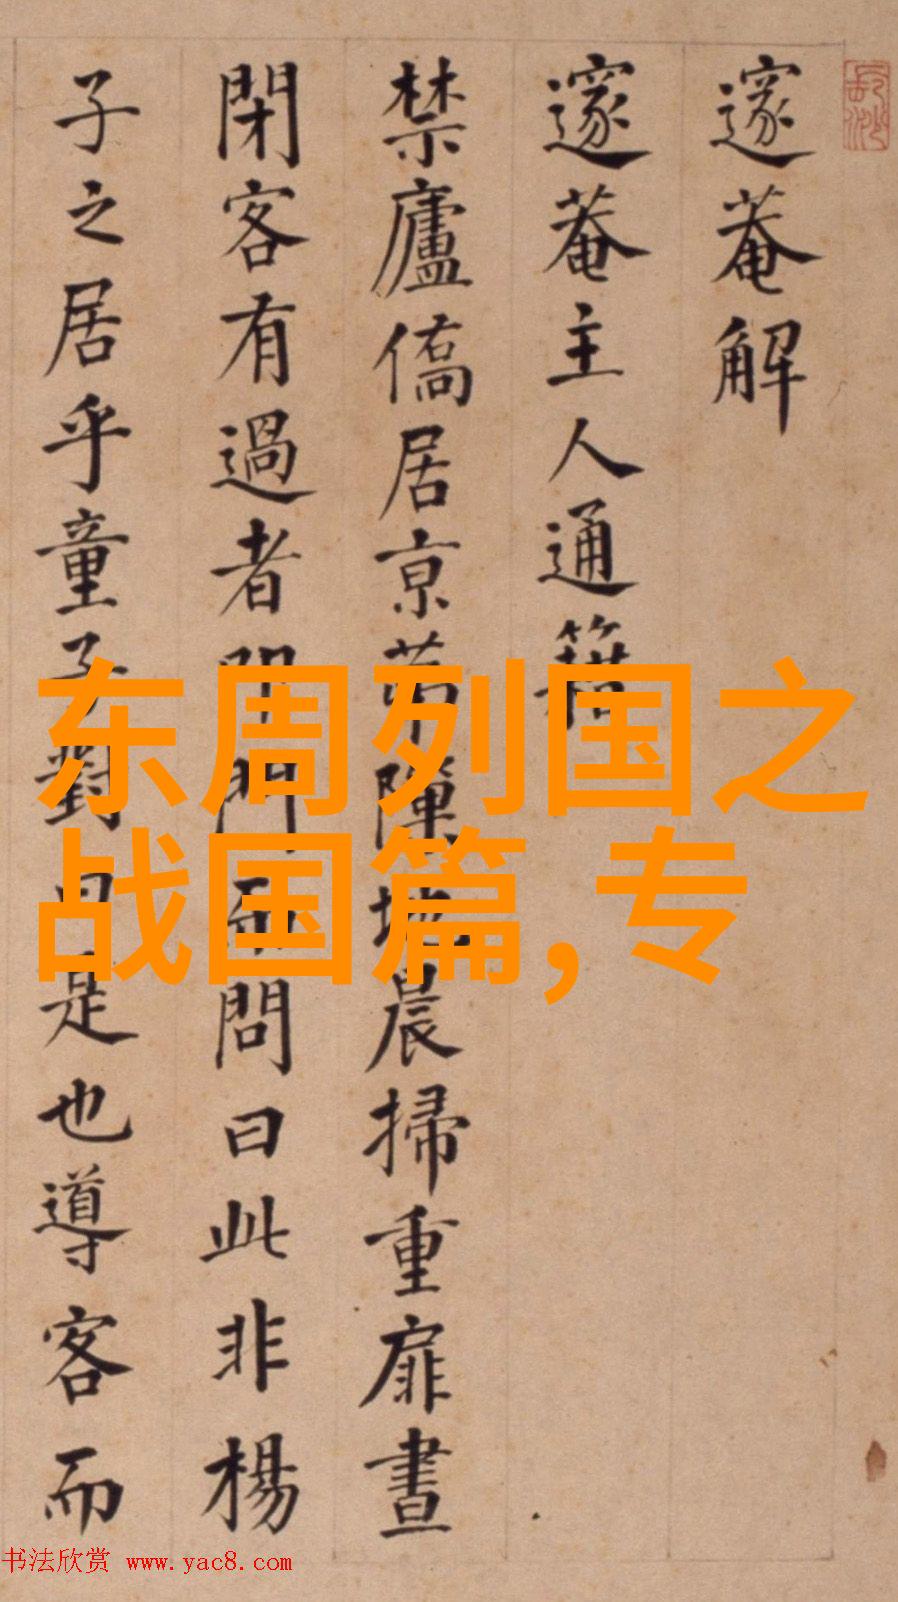 邃菴解
邃菴主人通籍
禁廬僑居京苐隙地晨掃重扉晝
閉客有過者叩門而問曰此非楊
子之居乎童子對曰是也導客而
东周列国之
战国篇,专
书法欣赏 www.yac8.com